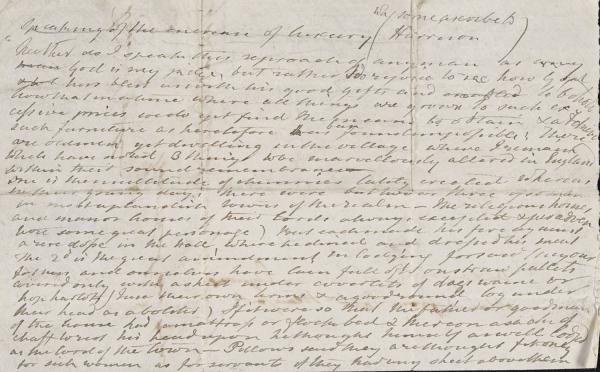 Speaking of the increase of luxury (Harrison
(by some ascribed
"Neither do I speak this in reproach of any man as
God is my judge but rather to rejoice to see how God
has blest us with his good gifts and to behold
how that in a time where all things are grown to such ex
cessive prices we do yet find the means to obtain & achieve
such furniture as heretofore has been impossible; There
are old men yet dwelling in the village where I remain
which have noted 3 things to be marvellously altered in England
within their sound remembrance
One is the multitude of chimnies lately erected whereas
in their young days there were but two or three if so many
in most uplandish towns of the realm the religious houses,
and manor houses of their Lords always excepted & peradven
ture some great personage) but each made his fire against
a rere dose in the hall where he dined and dressed his meat
The 2d is the great amendment in lodging for said they our
fathers and ourselves have lain full oft on straw pallets
covered only with a sheet under coverlets of dagswaine or
hop harlots (I use their own terms & a good round log under
their head as a bolster) If it were so that the father or goodman
of the house had a mattrass or flock bed & thereon a sack of
chaff to rest his head upon he thought himself as well lodged
as the lord of the town — Pillows said they are thought fit only
for sick women as for servants if they had any sheet above them